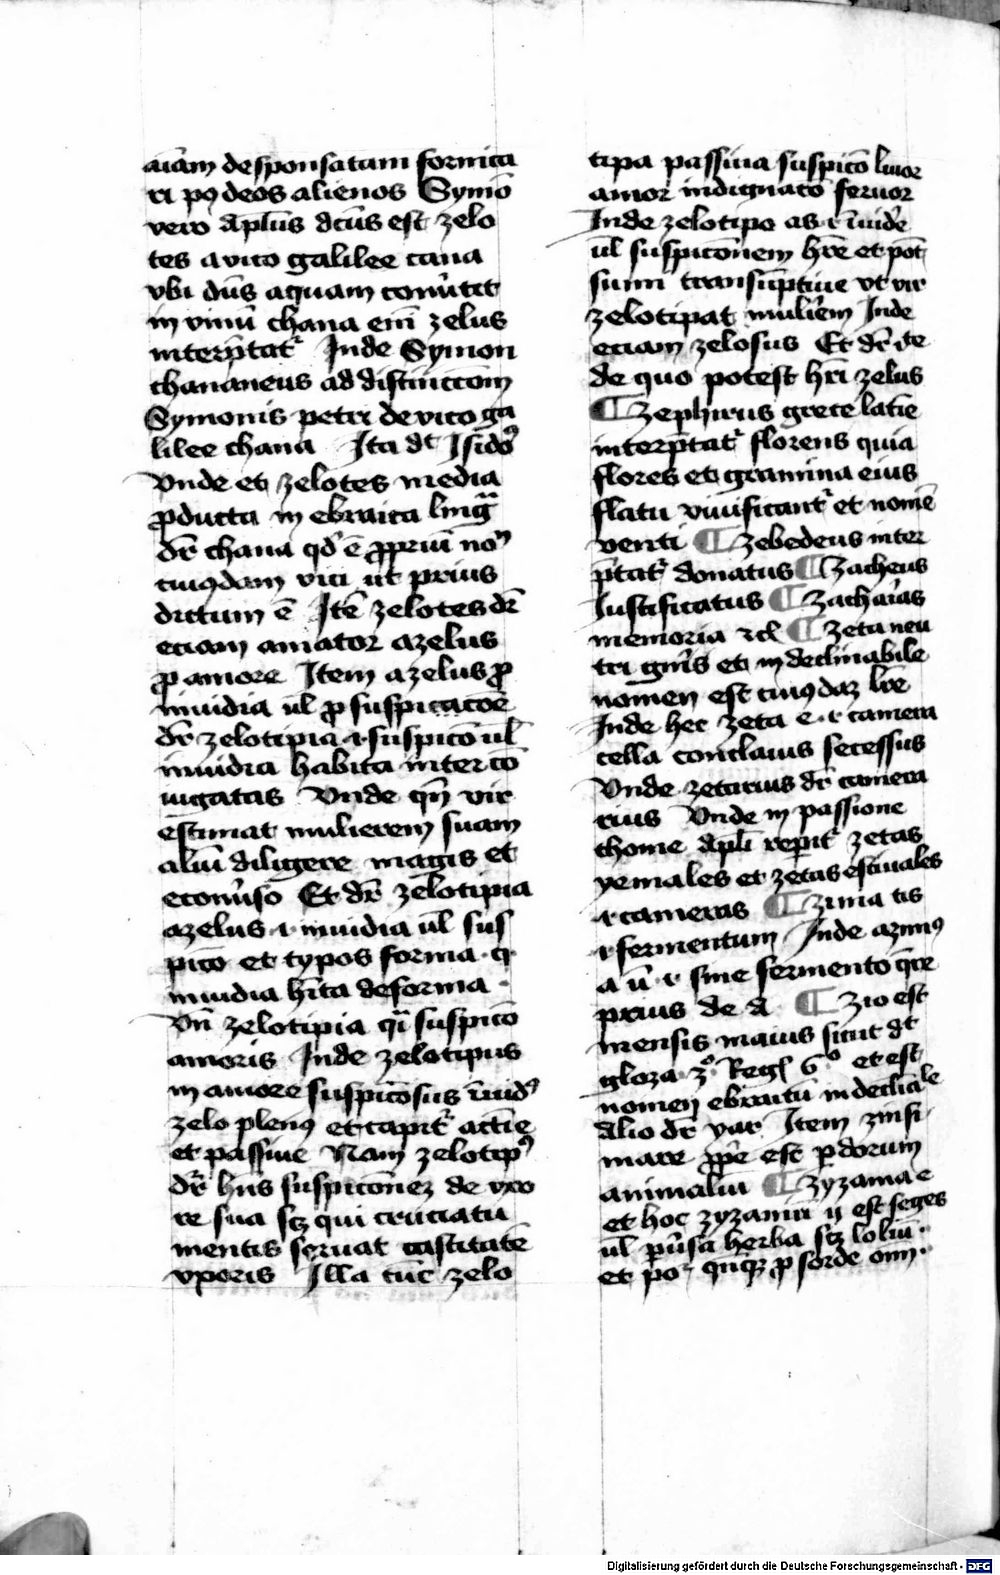 aīam desponsatam fornica
ri pꝰ deos alienos Symō
vero apl̄us dc̄us est zelo
tes a vico galilee cana
vbi dn̄s aquam conūtit
in vinū chana em̄ zelus
interp̄tatr̉ Inde Symon
chananeus ad distinccōm
Symonis petri de vico ga
lilee chana Ita dt̄ Isidoꝰ
Vnde et zelotes media
ꝓducta in ebraica lingᷓ
dr̄ chana qd̓ ē ꝓpriū noꝫ
cuiꝰdam vici ut prius
dictum ē Itē zelotes dr̄
eciam amator a zelus
ꝓ amore Item a zelus ꝓ
inuidia ul̄ ꝓ suspicacōe
dr̄ zelotipia .i. suspicō ul̄
inuidia habita inter cō
iugatas Vnde qn̄ vir
estimat mulierem suam
aliū diligere magis et
econūso Et dr̄ zelotipia
a zelus .i. inuidia ul̄ sus
picō et typos forma .q.
inuidia hīta de forma .
Vn̄ zelotipia qī suspicō
amoris Inde zelotipus
in amore suspicōsus īuidꝰ
zelo plenꝰ et capitr̉ actīe
et passiue Nam zelotipꝰ
dr̄ hn̄s suspicōnez de vxo
re sua sꝫ qui cruciatu
mentis seruat castitatē
vxoris Illa tūc zelo
tipa passiua suspicō liuor
amor indignacō feruor
Inde zelotipo as .i. īuide᷑
ul̄ suspicōnem hr̄e et pōt
sumi transūptiue vt vir
zelotipat muliēm Inde
eciam zelosus Et dr̄ de
de quo potest hr̄i zelus
¶ Zephirus grece latīe
interp̄tatr̉ florens quia
flores et gramina eius
flatu viuificantr̉ et nomē
venti ¶ Zebedeus inter
p̄tatr̉ donatus ¶ Zacheus
Iustificatus ¶ Zacharias
memoria ⁊cꝭ ¶ Zeta neu
tri gn̄is et indeclinabile
nomen est cuiꝰdaꝫ lr̄e
Inde hec zeta e .i. camera
cella conclauis secessus
Vnde zetarius dr̄ camera
rius Vnde in passione
thome apl̄i reperitr̉ zetas
yemales et zetas estiuales
.i. cameras ¶ Zima tis
.i. fermentum Inde azimꝰ
a ū .i. sine fermento qr̄e
prius de A ¶ Zio est
mensis maius sicut dt̄
gloza 3º Regꝭ 6º et est
nomen ebraicū indeclīale
Alio dr̄ yar Item zinsi
mare ꝓpe est perdorum
animaliū ¶ Zyzama e
et hoc zyzamiū ij est seges
ul̄ pūsa herba sꝫ loliū .
et po⁊ qn̄qꝫ ꝓ sorde oīm .
Digitalisierung gefördert durch die Deutsche Forschungsgemeinschaft - DFG